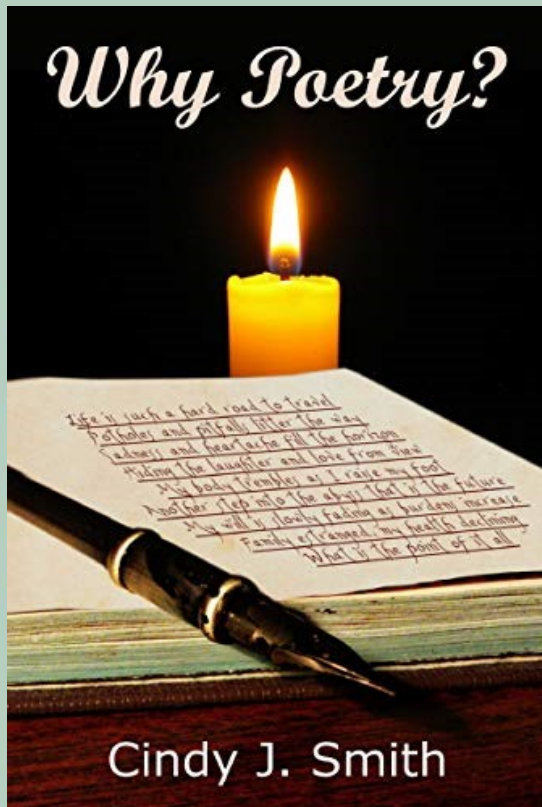 Why Poetry?
Life is such a hard road to travel
Potholes and pitfalls litter the way
Sadness and heartache fill the horizon
Hiding the laughter and love from view
My body trembles as I raise my foot
Another step into the abyss that is the future
My will is slowly fading as burdens increase
Family estranged, my health declining
What is the point of it all
Cindy J. Smith